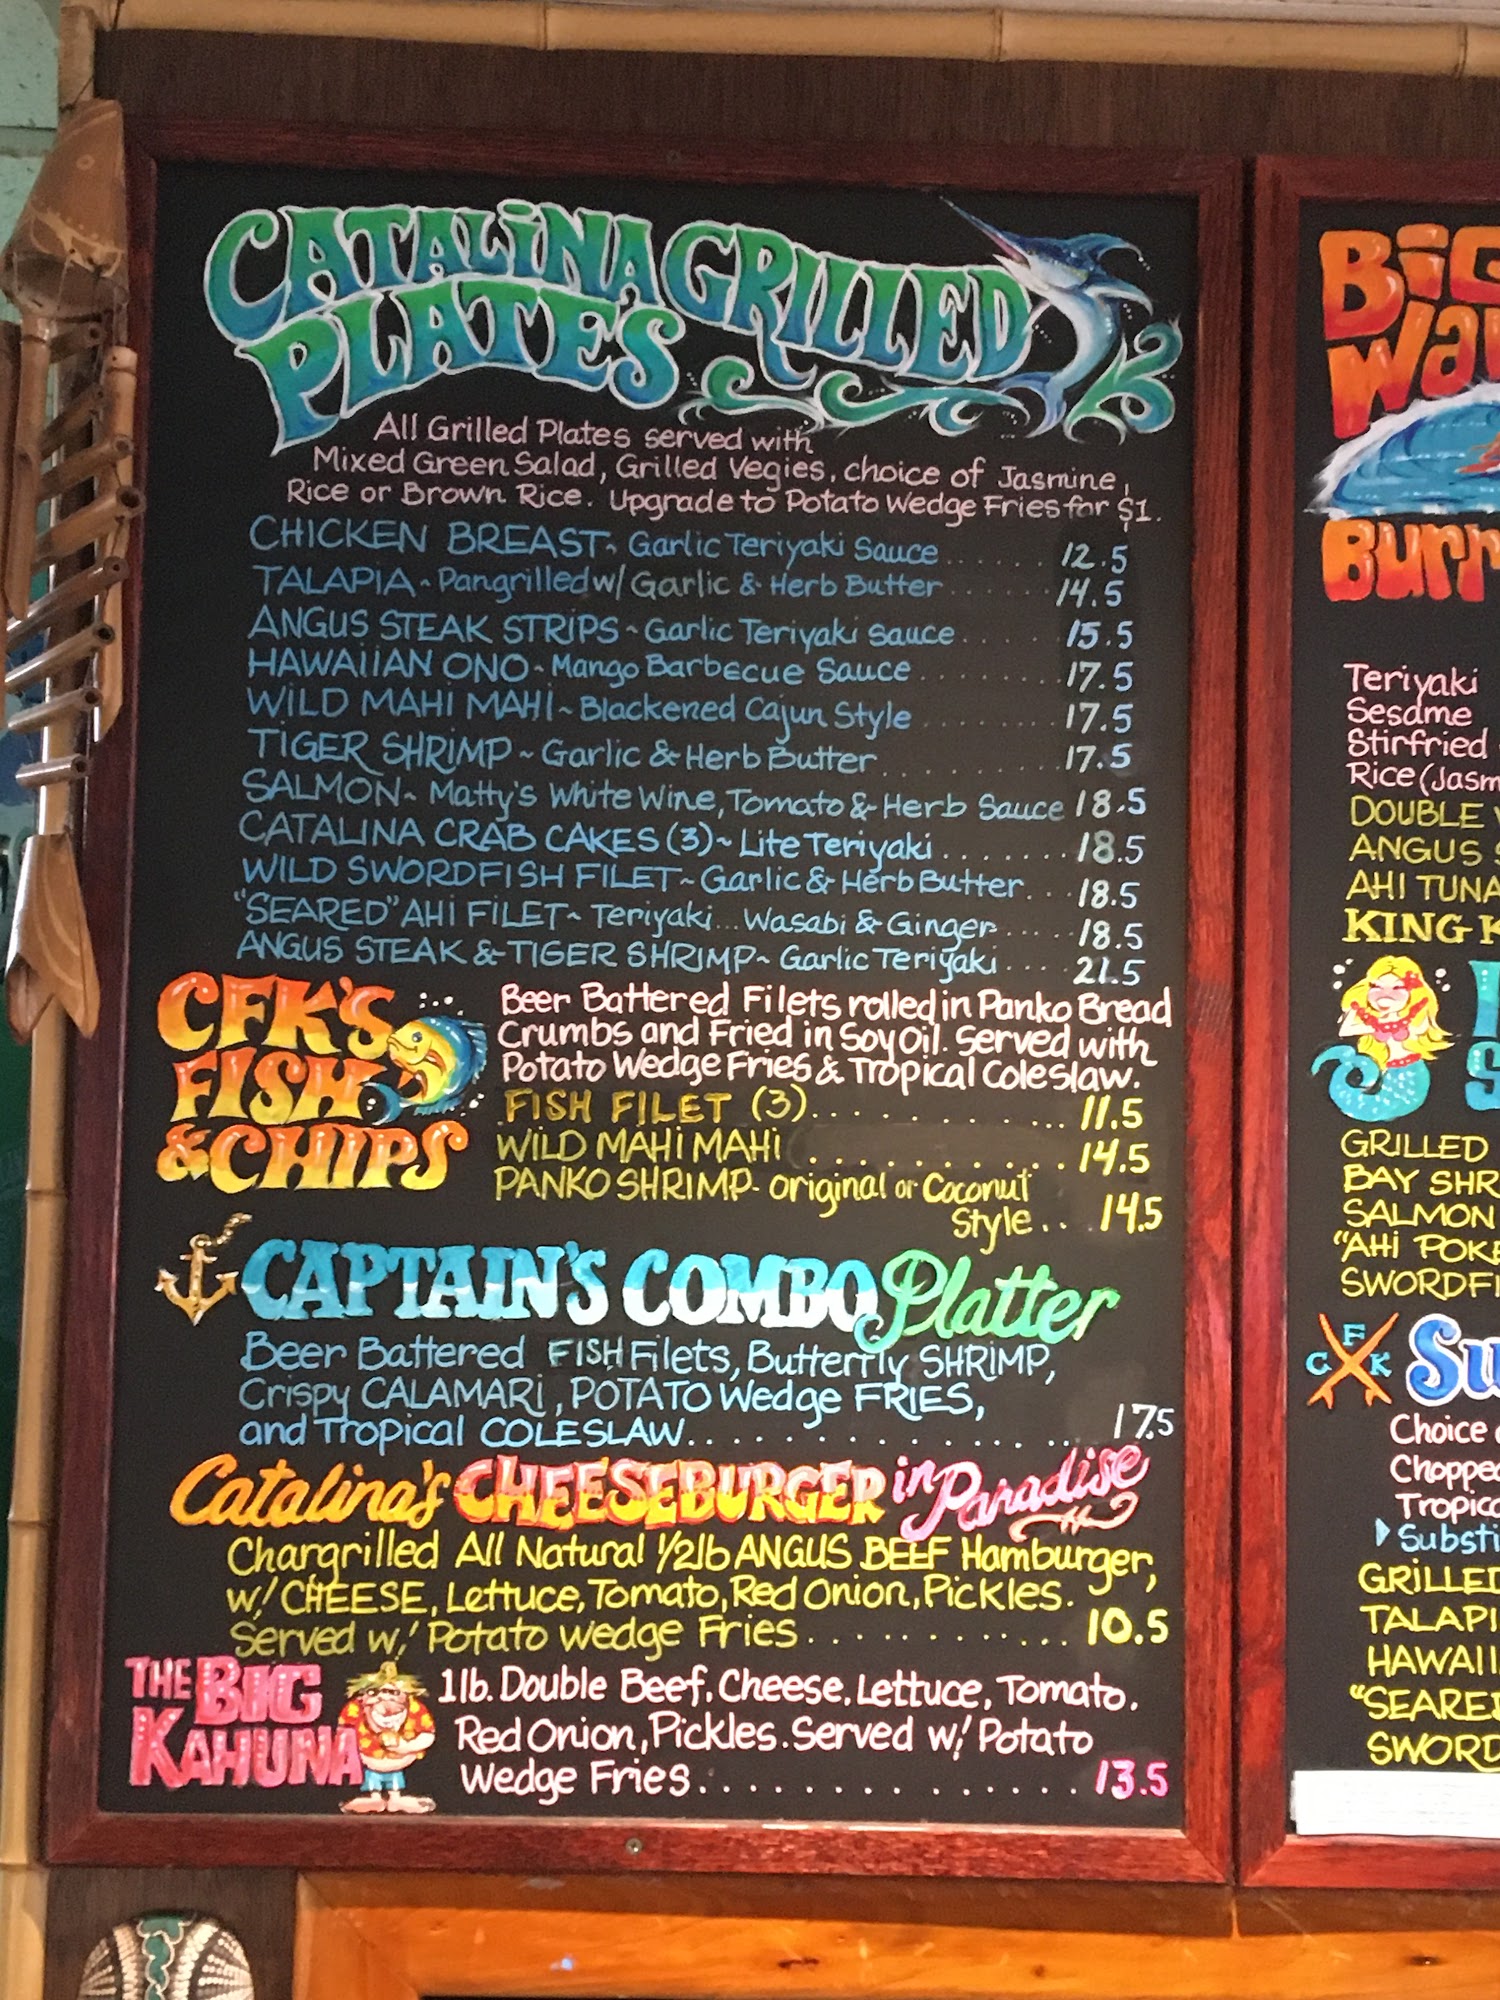 CATALINA GRILLED
PLATES
All Grilled Plates served with
Mixed Green Salad, Grilled Vegies, choice of Jasmine,
Rice or Brown Rice. Upgrade to Potato Wedge Fries for $1.
CHICKEN BREAST~ Garlic Teriyaki Sauce....... 12.5
TALAPIA~Pangrilled w/ Garlic & Herb Butter....... 14.5
ANGUS STEAK STRIPS~Garlic Teriyaki Sauce...... 15.5
HAWAIIAN ONO~Mango Barbecue Sauce......... 17.5
WILD MAHI MAHI~Blackened Cajun Style......... 17.5
TIGER SHRIMP~Garlic & Herb Butter.......... 17.5
SALMON~ Matty's White Wine, Tomato & Herb Sauce 18.5
CATALINA CRAB CAKES (3)~Lite Teriyaki....... 18.5
WILD SWORDFISH FILET~Garlic & Herb Butter... 18.5
"SEARED" AHI FILET~ Teriyaki...Wasabi & Ginger.... 18.5
ANGUS STEAK & TIGER SHRIMP~ Garlic Teriyaki.... 21.5
CFK'S
FISH
& CHIPS
Beer Battered Filets rolled in Panko Bread
Crumbs and Fried in Soy Oil. Served with
Potato Wedge Fries & Tropical Coleslaw.
FISH FILET (3)........... 11.5
WILD MAHI MAHI........... 14.5
PANKO SHRIMP- original or Coconut
Style... 14.5
CAPTAIN'S COMBO Platter
Beer Battered FISH Filets, Butterfly SHRIMP,
Crispy CALAMARI, POTATO Wedge FRIES,
and Tropical COLESLAW.............. 17.5
Catalina's CHEESEBURGER in Paradise
Chargrilled All Natural 1/2lb ANGUS BEEF Hamburger,
w/ CHEESE, Lettuce, Tomato, Red Onion, Pickles.
Served w/ Potato wedge Fries............ 10.5
THE BIG
KAHUNA
1 lb. Double Beef, Cheese, Lettuce, Tomato,
Red Onion, Pickles. Served w/ Potato
Wedge Fries.............. 13.5
Teriyaki
Sesame
Stirfried
DOUBLE
ANGUS
AHI TUNA
KING
GRILLED
SALMON
CFK
Choice